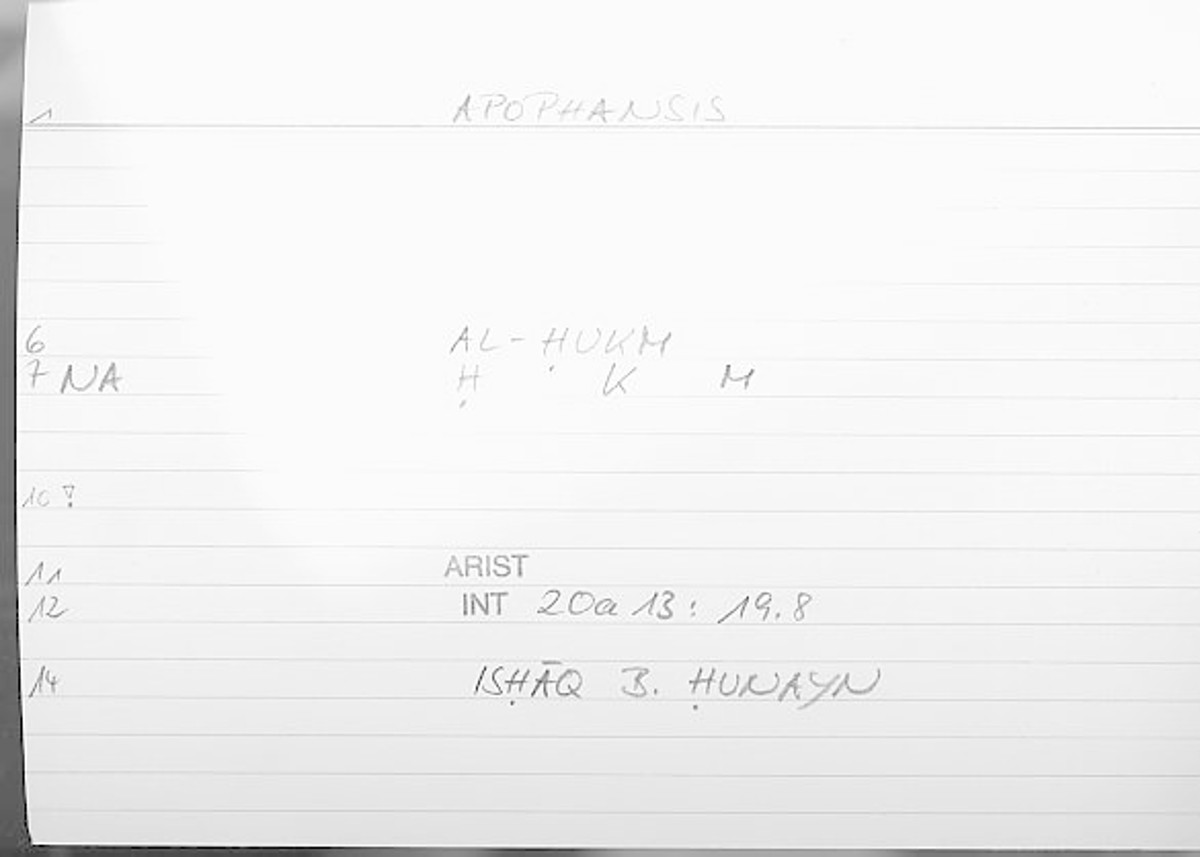 1 APOPHANSIS
6 AL-ḤUKM
7 NA Ḥ K M
10 ?
11 ARIST
12 INT 20a 13: 19.8
14 ISḤĀQ B. ḤUNAYN